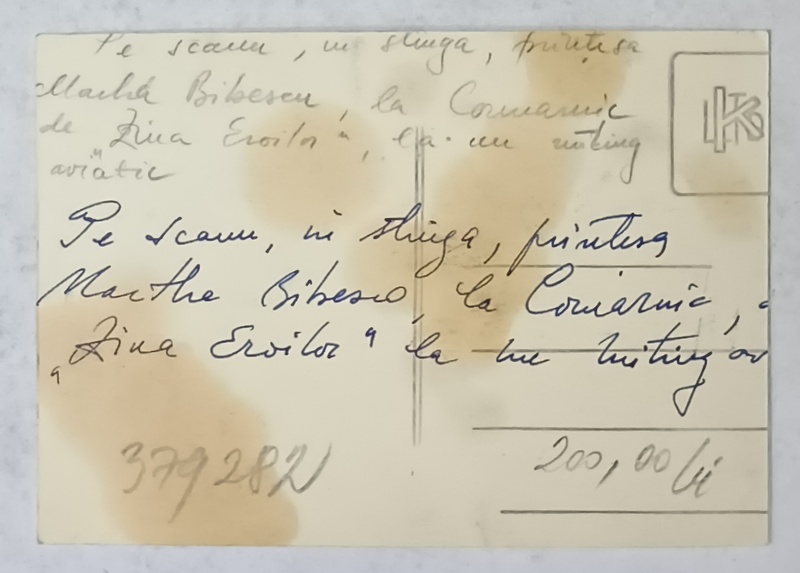 Pe scaun, in stinga, prințesa
Martha Bibescu, la Comarnic
de „Ziua Eroilor", la un miting
aviatic
Pe scaun, in stinga, printesa
Martha Bibescu, la Comarnic,
„Ziua Eroilor" la un miting av
379282
200,00 lei